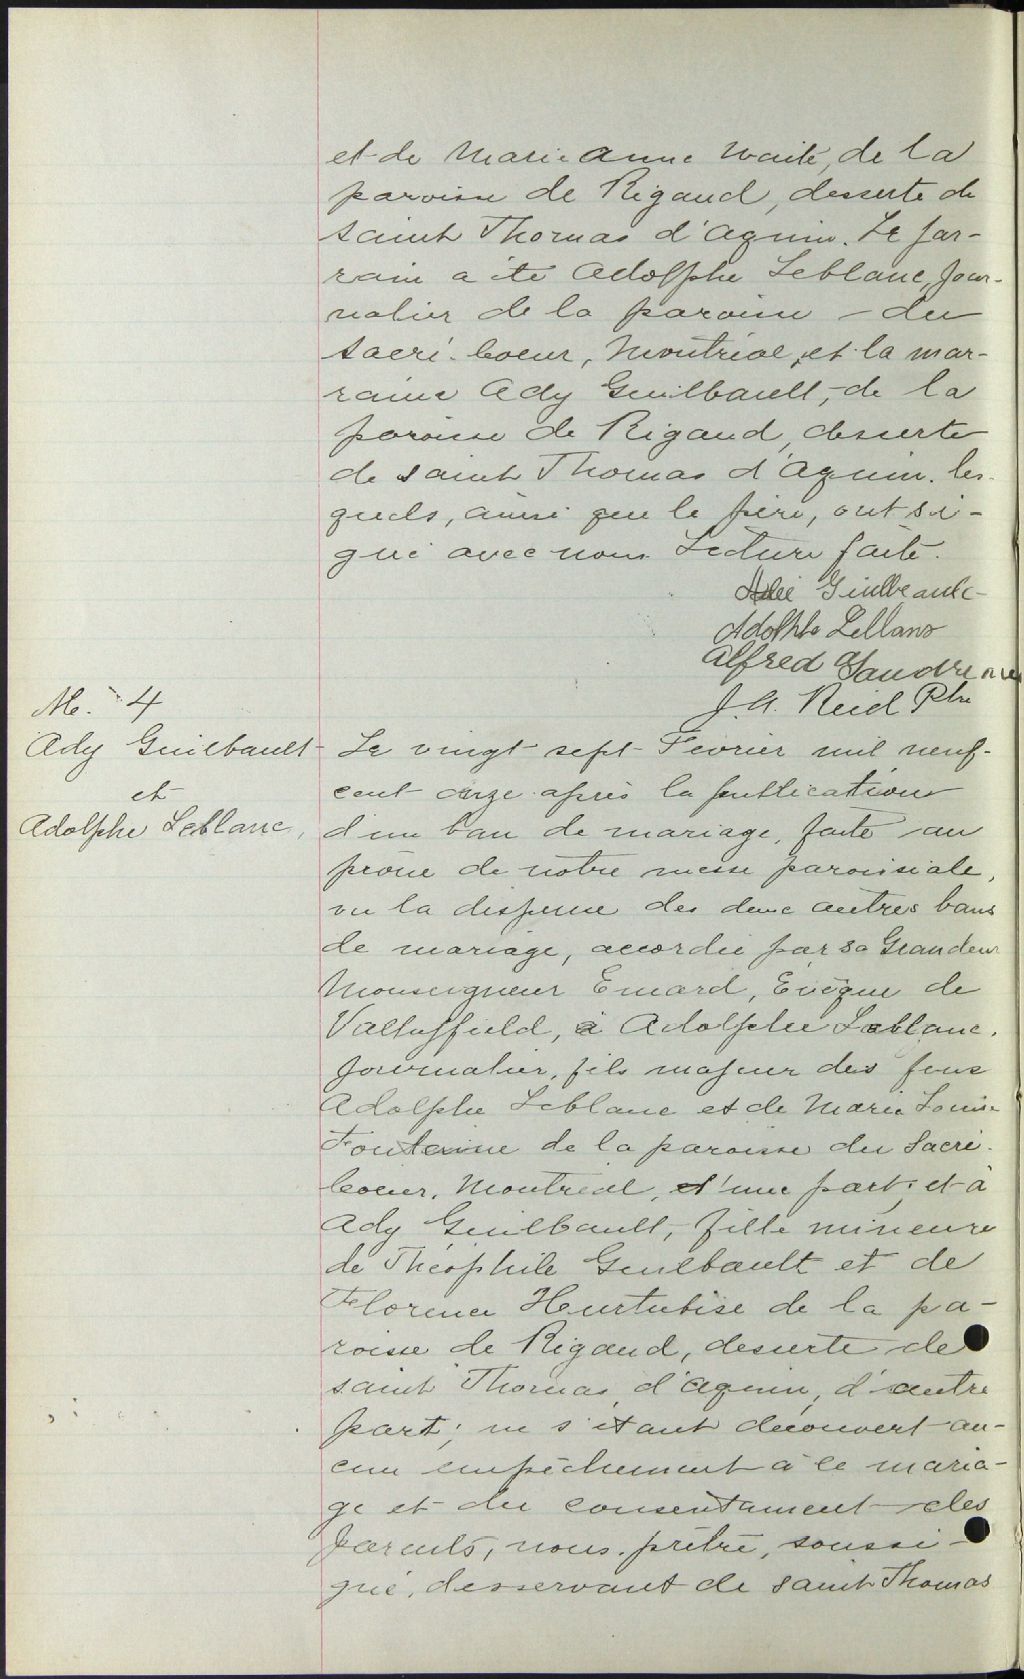 et de Marie Anne Waite, de la
paroisse de Rigaud, desserte de
saint Thomas d'Aquin. Le par-
rain a été Adolphe Leblanc, jour-
nalier de la paroisse du
Sacré-Coeur, Montréal, et la mar-
raine Ady Guilbault, de la
paroisse de Rigaud, desserte
de saint Thomas d'Aquin. les-
quels, ainsi que le père, ont si-
gné avec nous. Lecture faite.
Guilbeault
Adolphe Leblanc
Alfred
J. A. Reid Ptre
M. 4
Ady Guilbault
et
Adolphe Leblanc,
Le vingt sept Février mil neuf-
cent onze après la publication
d'un ban de mariage, faite au
prône de notre messe paroissiale,
vu la dispense des deux autres bans
de mariage, accordée par Sa Grandeur
Monseigneur Emard, Evêque de
Valleyfield, à Adolphe Leblanc,
journalier, fils majeur des feus
Adolphe Leblanc et de Marie Louise
Fontaine de la paroisse du Sacré-
Coeur, Montréal, d'une part; et à
Ady Guilbault, fille mineure
de Théophile Guilbault et de
Florence Hurtubise de la pa-
roisse de Rigaud, desserte de
saint Thomas d'Aquin, d'autre
part; ne s'étant découvert au-
cun empêchement à ce maria-
ge et du consentement des
parents, nous, prêtre, soussi-
gné, desservant de saint Thomas